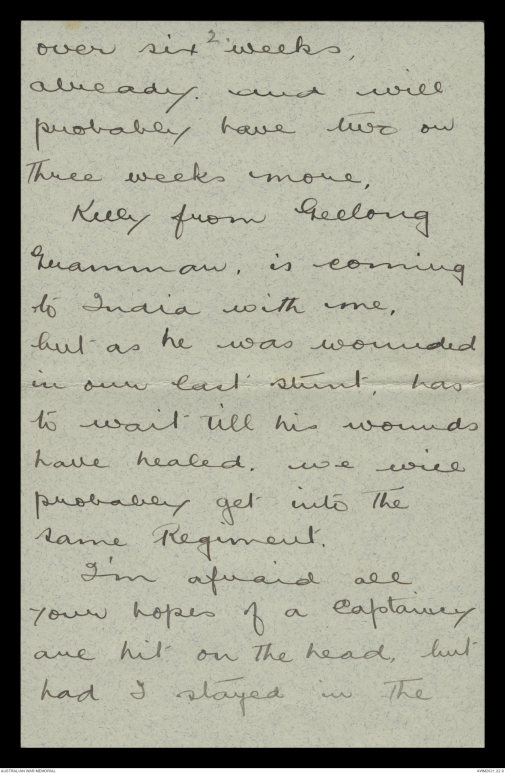 2.
over six weeks,
already. and will
probably have two or
three weeks more.
Kelly from Geelong
Grammar, is coming
to India with me,
but as he was wounded
in our last stunt, has
to wait till his wounds
have healed. we will
probably get into the
same Regiment.
I'm afraid all
your hopes of a Captaincy
are hit on the head, but
had I stayed in the
AUSTRALIAN WAR MEMORIAL